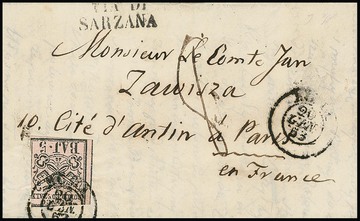 VIA DI
SARZANA
Monsieur Le Comte Jan
Zawisza
10. Cité d'Antin à Paris
en France
BAJ. 5